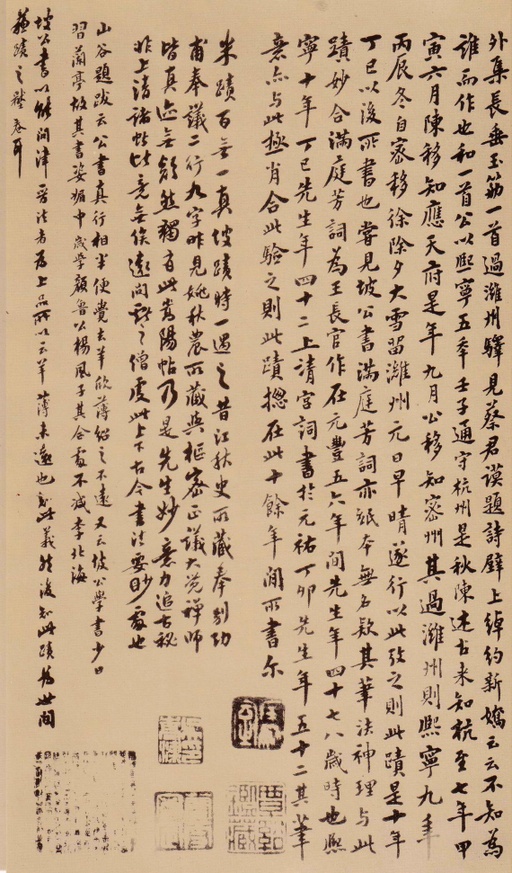 外集長垂玉筯一首過濰州驛見蔡君謨題詩壁上綽約新嬌云云不知為
誰而作也和一首公以熙寧五年壬子通守杭州是秋陳述古來知杭至七年甲
寅六月陳移知應天府是年九月公移知密州其過濰州則熙寧九年
丙辰冬自密移徐除夕大雪留濰州元日早晴遂行以此攷之則此蹟是十年
丁巳以後所書也嘗見坡公書滿庭芳詞亦紙本無名款其筆法神理与此
蹟妙合滿庭芳詞為王長官作在元豐五六年間先生年四十七八歲時也熙
寧十年丁巳先生年四十二上清宮詞書於元祐丁卯先生年五十二其筆
意亦与此極肖合此驗之則此蹟揔在此十餘年間所書尔
米蹟百無一真坡蹟時一遇之昔江秋史所藏奉別功
甫奉議二行九字昨見姚秋農所藏與樞密正議大覺禪師
皆真迹無疑然獨有此嵩陽帖乃是先生妙意力追古秘
非上清諸帖比竟無俟遠問許之僧虔此上下古今書法要眇處也
山谷題跋云公書真行相半便覺去羊欣薄紹之不遠又云坡公學書少日
習蘭亭故其書姿媚中歲學顏魯公楊風子其合處不減李北海
坡公書以能問津晉法者為上品所以云羊薄未遠也知此義然後知此蹟為世間
蘇蹟之